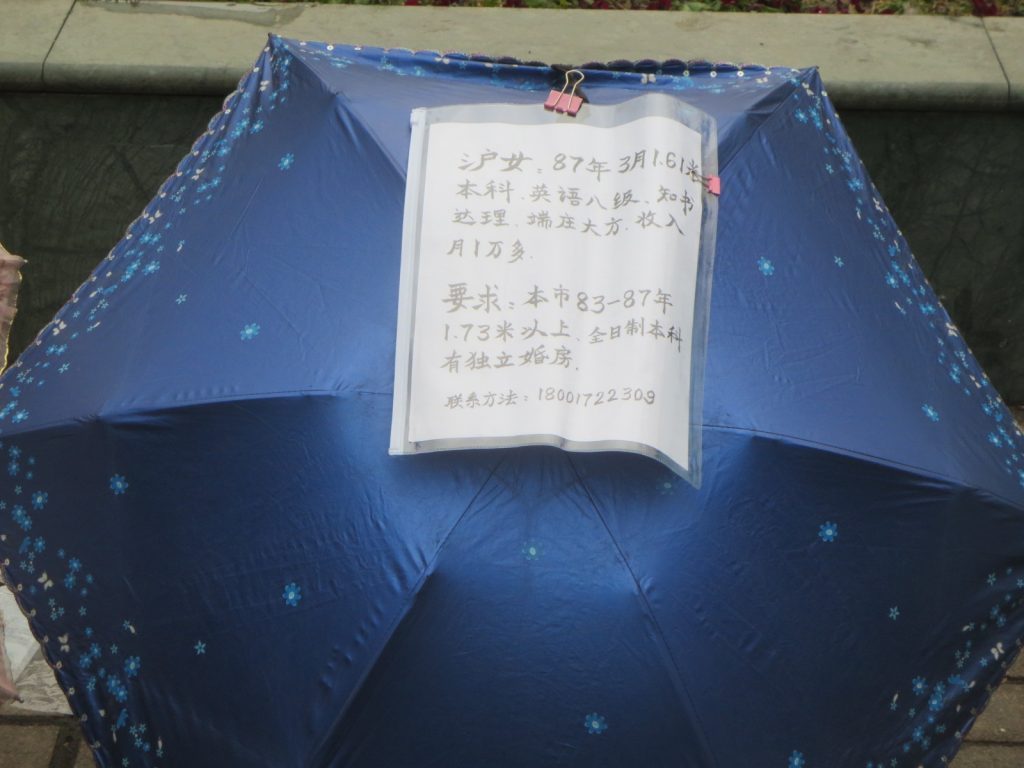 沪女：87年3月1.61米
本科、英語八级、知书
达理、端庄大方.收入
月1万多.
要求：本市83-87年
1.73米以上、全日制本科
有独立婚房.
联系方法：18001722309